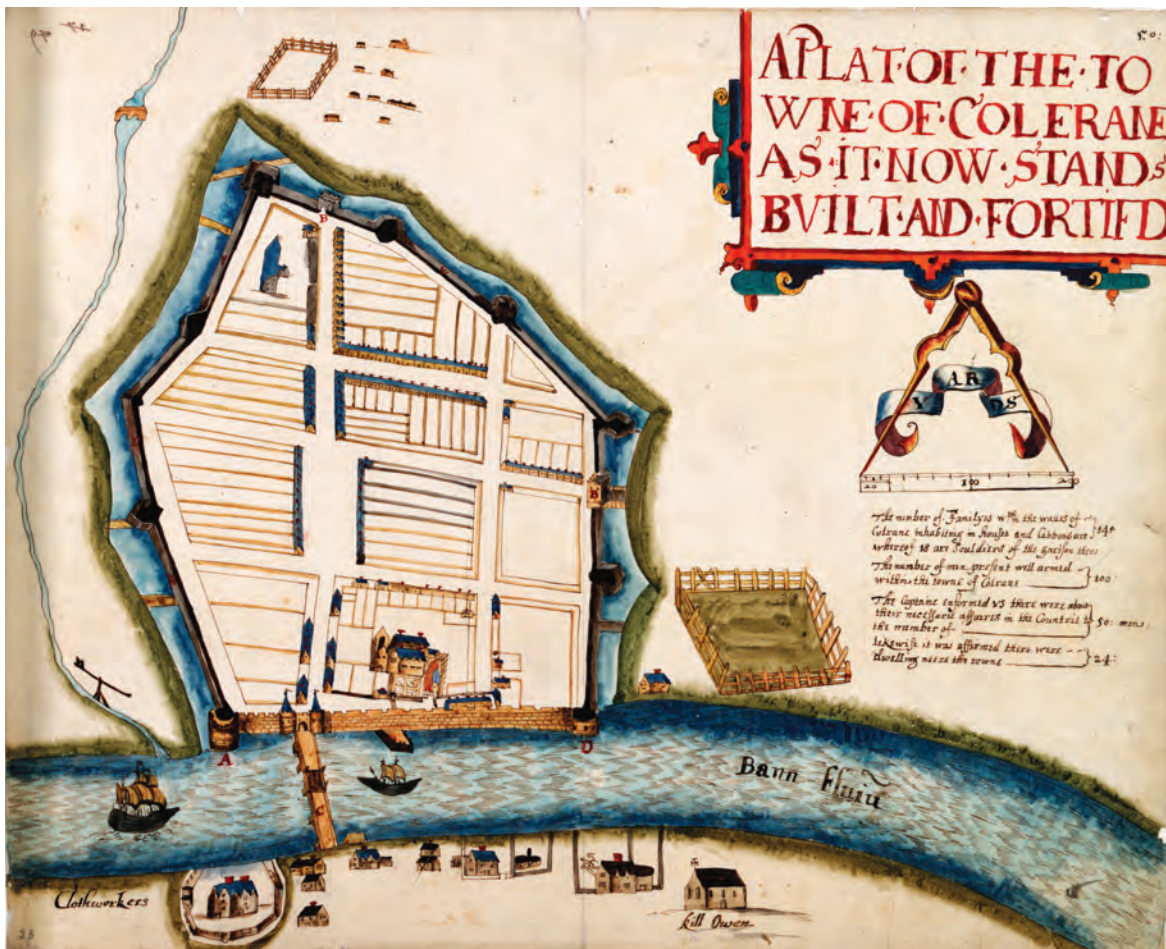 5.0:
A PLAT·OF·THE·TO
WNE·OF·COLERANE
AS·IT·NOW·STANDs
BVILT·AND·FORTIFD
Y AR DS
20 100 200
The number of Familyes wthin the walles of
Colrane inhabiting in houses and Cabbons are 141
wherof 18 are Souldiers of the garison there
The number of men present well armed
within the towne of Colrane 100:
The Captaine enformed vs there were about
their necessarie affaires in the Countrie 50: men:
the number of
lekewise it was affirmed there were
dwelling neere the towne 24:
B
B
A
D
C
Bann fluiũ
Clothworkers
kill Owen
23